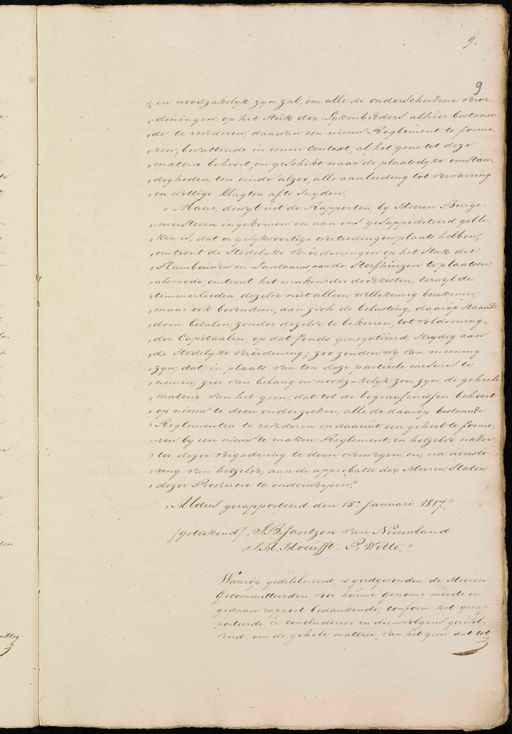 9.
9
„en noodzakelyk zyn zal, om alle de onderscheidene veror-
„deningen op het stuk der Lykenbidders alhier bestaan-
„de, te revideren, daarvan een nieuw Reglement te forme-
„ren, bevattende in eenen context, al het geen tot deze
„materie behoort, en geschikt naar de plaatselyke omstan-
„digheden, ten einde alzoo alle aanleiding tot verwarring
„en nettige klagten afte snyden.
„Maar, dewyl uit de Rapporten, by Heeren Burge-
„meesteren ingekomen en aan ons gesuppediteerd geble-
„ken is, dat er gelyksoortige overtredingen plaats hebben,
„omtrent de Stedelyke Verordeningen op het stuk der
„Flambouwen en Lantaarns aan de Sterfhuizen te plaatsen,
„alsmede omtrent het maken der doodkisten, terwyl de
„timmerlieden dezelve niet alleen willekeurig berekenen,
„maar ook bovendien, aan zich de belasting, daarop staande
„doen betalen, zonder dezelve te bekeeren, tot voldoening
„der Capitaalen, op dat fonds genegotieerd, strydig aan
„de Stedelyke verordening; zoo zouden wy van meening
„zyn, dat, in plaats van ten deze partieele mesures te
„nemen, zeer van belang en noodzakelyk zou zyn, de geheele
„materie van het geen, dat tot de begraafenissen behoort
„op nieuw te doen onderzoeken, alle de daarop bestaande
„Reglementen te revideren en daaruit een geheel te forme-
„ren by een nieuw te maken Reglement, en hetzelve nader
„ter dezer vergadering te doen overwegen, en na arreste-
„ring van hetzelve, aan de approbatie der Heeren Staten
„dezer Provincie te onderwerpen."
„Aldus gerapporteerd den 15e Januari 1817."
(getekend) „J. B. Jantzon van Nieuwland
J. A. Hoeufft, P. Witte."
Waarop gedelibereerd is goedgevonden de Heeren
Gecommitteerden, voor hunne genome moeite en
gedaan rapport bedankende, conform het gerap-
porteerde te concluderen en dienvolgens geresol-
veerd, om de geheele materie, van het geen dat tot